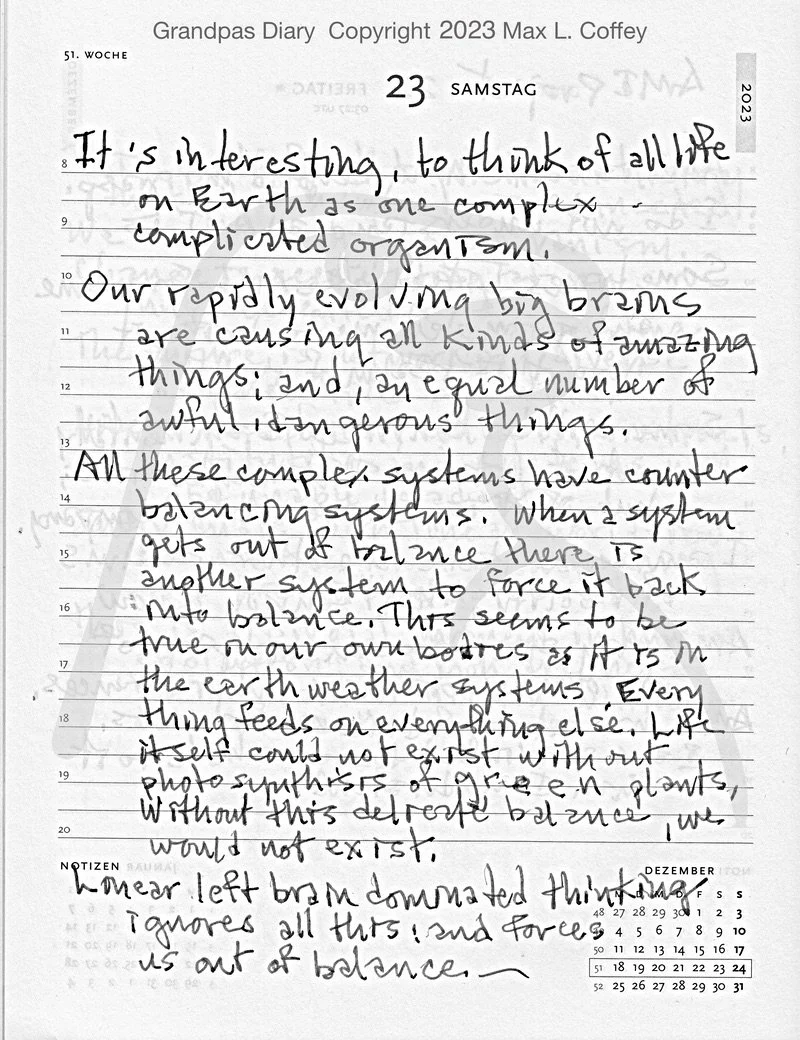 Grandpas Diary Copyright 2023 Max L. Coffey
51. WOCHE
23 SAMSTAG
2023
8 It's interesting, to think of all life
on Earth as one complex -
9 complicated organism.
10 Our rapidly evolving big brains
11 are causing all kinds of amazing
12 things; and, an equal number of
awful, dangerous things.
13 All these complex systems have counter
14 balancing systems. When a system
15 gets out of balance there is
another system to force it back
16 into balance. This seems to be
true in our own bodies as it is in
17 the earth weather systems. Every
18 thing feeds on everything else. Life
itself could not exist without
19 photosynthisis of green plants,
Without this delicate balance, we
20 would not exist.
NOTIZEN
Linear left brain dominated thinking
ignores all this; and forces
us out of balance.
DEZEMBER
M D F S S
48 27 28 29 30 1 2 3
4 5 6 7 8 9 10
50 11 12 13 14 15 16 17
51 18 19 20 21 22 23 24
52 25 26 27 28 29 30 31